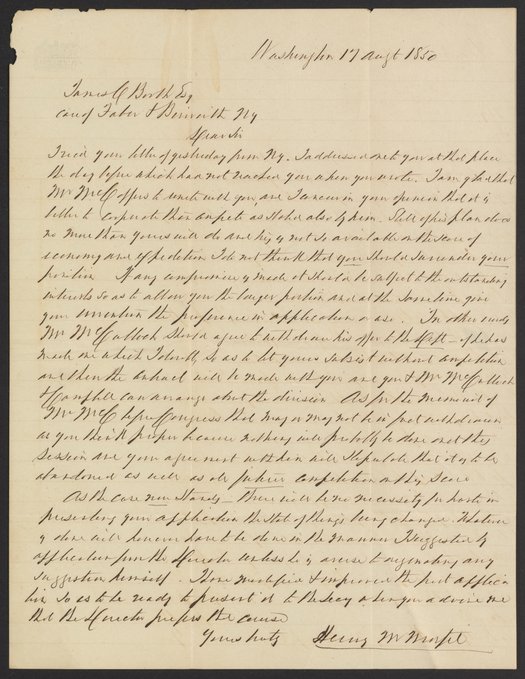 Washington 17 Augt 1850
James C Booth Esq
care of Faber & Bierwirth NY
Dear Sir
I recd your letter of yesterday from NY. I addressed one to you at that place
the day before which had not reached you when you wrote. I am glad that
Mr McC offers to unite with you and I concur in your opinion that it is
better to cooperate than compete as stated also by him. Still if his plan does
no more than yours will do and his is not so available on the score of
economy and expedition I do not think that you should surrender your
position. If any compromise is made it should be subject to the outstanding
interests so as to allow you the larger portion and at the same time give
your invention the preference in application or use. In other words
Mr McCulloch should agree to withdraw his offer to the Dept - if he has
made one which I doubt, so as to let yours subsist without competition
and then the contract will be made with you and you & Mr McCulloch
& Campbell can arrange about the division. As for the memorial of
Mr McC before Congress that may or may not be in fact withdrawn
as you think proper because nothing will probably be done on it this
Session and your agreement with him will stipulate that it is to be
abandoned as well as all future competition on this score
As the case now stands - there will be no necessity for haste in
presenting your application the state of things being changed. Whatever
is done will however have to be done in the manner I suggested by
application from the Director unless he is averse to originating any
suggestion himself. I have modified & improved the first applica
tion, so as to be ready to present it to the Secy when you advise me
that the Director prefers the course
Yours truly Henry M Morfit